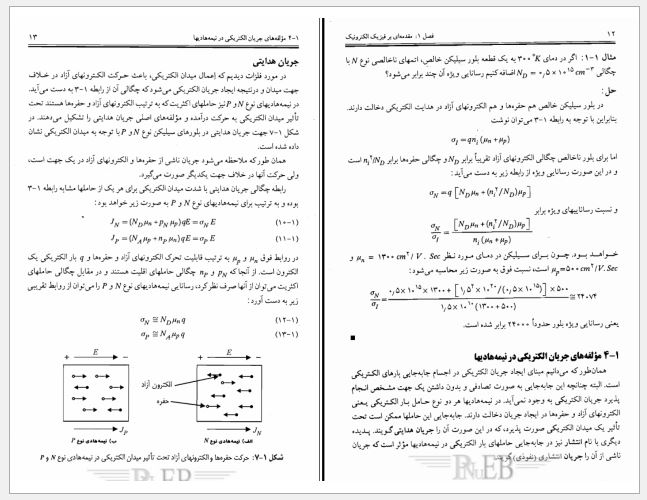 ۱۲
فصل ۱: مقدمه‌ای بر فیزیک الکترونیک
مثال ۱-۱: اگر در دمای ۳۰۰ °K به یک قطعه بلور سیلیکن خالص، اتمهای ناخالصی نوع N با
چگالی N_D = ۰٫۵×۱۰^۱۵ cm^−۳ اضافه کنیم رسانایی ویژه آن چند برابر می‌شود؟
حل:
در بلور سیلیکن خالص هم حفره‌ها و هم الکترونهای آزاد در هدایت الکتریکی دخالت دارند.
بنابراین با توجه به رابطه ۱-۳ می‌توان نوشت
σ_i = qn_i (μ_n + μ_p)
اما برای بلور ناخالص چگالی الکترونهای آزاد تقریباً برابر N_D و چگالی حفره‌ها برابر n_i^۲/N_D است
و در این صورت رسانایی ویژه از رابطه زیر به دست می‌آید:
σ_N = q [N_D μ_n + (n_i^۲ / N_D) μ_p]
و نسبت رساناییهای ویژه برابر
σ_N / σ_i = [N_D μ_n + (n_i^۲ / N_D) μ_p] / n_i (μ_n + μ_p)
خواهد بود. چون برای سیلیکن در دمای مورد نظر μ_n = ۱۳۰۰ cm^۲ / V . Sec و
μ_p = ۵۰۰ cm^۲ / V. Sec است، نسبت فوق به صورت زیر محاسبه می‌شود:
σ_N / σ_i = ۰٫۵×۱۰^۱۵ × ۱۳۰۰ + [۱٫۵^۲ × ۱۰^۲۰ / (۰٫۵×۱۰^۱۵)] × ۵۰۰ / ۱٫۵×۱۰^۱۰ (۱۳۰۰ + ۵۰۰) ≅ ۲۴۰۷۴
یعنی رسانایی ویژه بلور حدوداً ۲۴۰۰۰ برابر شده است.
۱-۴ مؤلفه‌های جریان الکتریکی در نیمه‌هادیها
همان‌طور که می‌دانیم مبنای ایجاد جریان الکتریکی در اجسام جابه‌جایی بارهای الکتریکی
است. البته چنانچه این جابه‌جایی به صورت تصادفی و بدون داشتن یک جهت مشخص انجام
پذیرد جریان الکتریکی به وجود نمی‌آید. در نیمه‌هادیها هر دو نوع حامل بار الکتریکی یعنی
الکترونهای آزاد و حفره‌ها در ایجاد جریان دخالت دارند. جابه‌جایی این حاملها ممکن است تحت
تأثیر یک میدان الکتریکی صورت پذیرد، که در این صورت آن را جریان هدایتی گویند. پدیده
دیگری با نام انتشار نیز در جابه‌جایی حاملهای بار الکتریکی در نیمه‌هادیها مؤثر است که جریان
ناشی از آن را جریان انتشاری (نفوذی) گویند.
PNuEB
۱-۴ مؤلفه‌های جریان الکتریکی در نیمه‌هادیها
۱۳
جریان هدایتی
در مورد فلزات دیدیم که اعمال میدان الکتریکی، باعث حرکت الکترونهای آزاد در خلاف
جهت میدان و درنتیجه ایجاد جریان الکتریکی می‌شود که چگالی آن از رابطه ۱-۳ به دست می‌آید.
در نیمه‌هادیهای نوع N و P نیز حاملهای اکثریت که به ترتیب الکترونهای آزاد و حفره‌ها هستند تحت
تأثیر میدان الکتریکی به حرکت درآمده و مؤلفه‌های اصلی جریان هدایتی را تشکیل می‌دهند. در
شکل ۱-۷ جهت جریان هدایتی در بلورهای سیلیکن نوع N و P با توجه به میدان الکتریکی نشان
داده شده است.
همان طور که ملاحظه می‌شود جریان ناشی از حفره‌ها و الکترونهای آزاد در یک جهت است،
ولی حرکت آنها در خلاف جهت یکدیگر صورت می‌گیرد.
رابطه چگالی جریان هدایتی با شدت میدان الکتریکی برای هر یک از حاملها مشابه رابطه ۱-۳
بوده و به ترتیب برای نیمه‌هادیهای نوع N و P به صورت زیر خواهد بود:
J_N = (N_D μ_n + p_N μ_p) qE = σ_N E (۱-۱۰)
J_P = (N_A μ_p + n_P μ_n) qE = σ_P E (۱-۱۱)
در روابط فوق μ_n و μ_p به ترتیب قابلیت تحرک الکترونهای آزاد و حفره‌ها و q بار الکتریکی یک
الکترون است. از آنجا که p_N و n_P چگالی حاملهای اقلیت هستند و در مقابل چگالی حاملهای
اکثریت می‌توان از آنها صرف نظر کرد، رسانایی نیمه‌هادیهای نوع N و P را می‌توان از روابط تقریبی
زیر به دست آورد:
σ_N ≅ N_D μ_n q (۱-۱۲)
σ_P ≅ N_A μ_p q (۱-۱۳)
+ E −
+ E −
الکترون آزاد
حفره
J_P
J_N
الف) نیمه‌هادی نوع N
ب) نیمه‌هادی نوع P
شکل ۱-۷: حرکت حفره‌ها و الکترونهای آزاد تحت تأثیر میدان الکتریکی در نیمه‌هادی نوع N و P
PNuEB